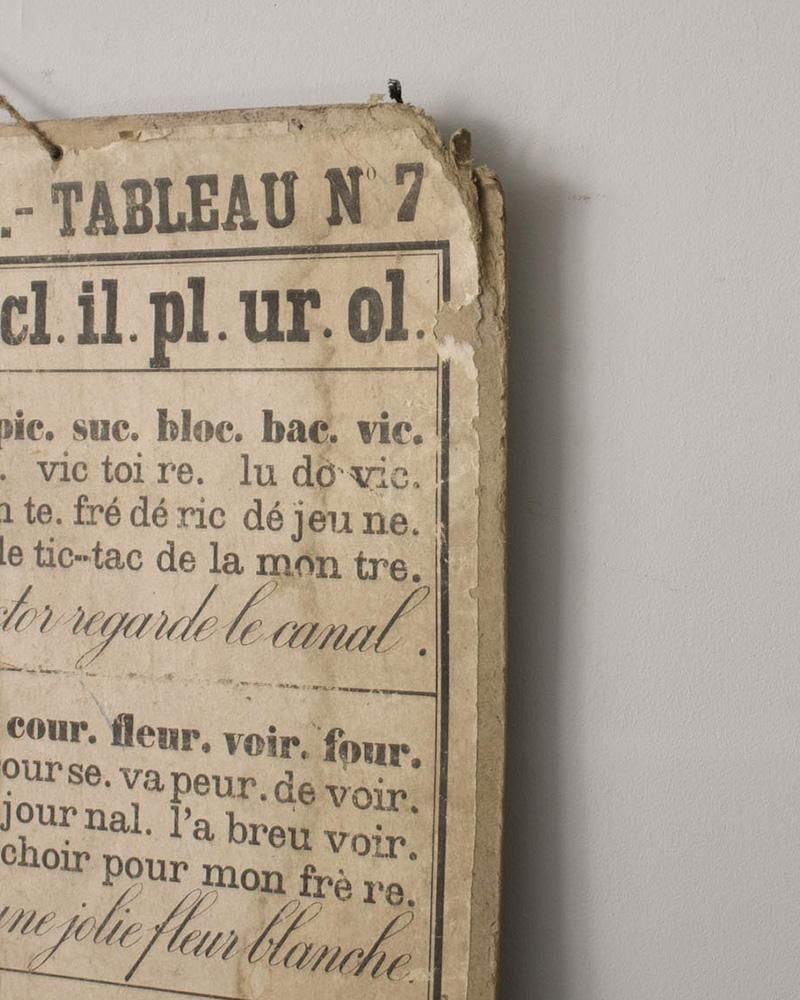 .- TABLEAU Nº 7
cl. il. pl. ur. ol.
pic. suc. bloc. bac. vic.
. vic toi re. lu do vic.
te. fré dé ric dé jeu ne.
le tic-tac de la mon tre.
regarde le canal.
cour. fleur. voir. four.
our se. va peur. de voir.
jour nal. l'a breu voir.
choir pour mon frè re.
une jolie fleur blanche.